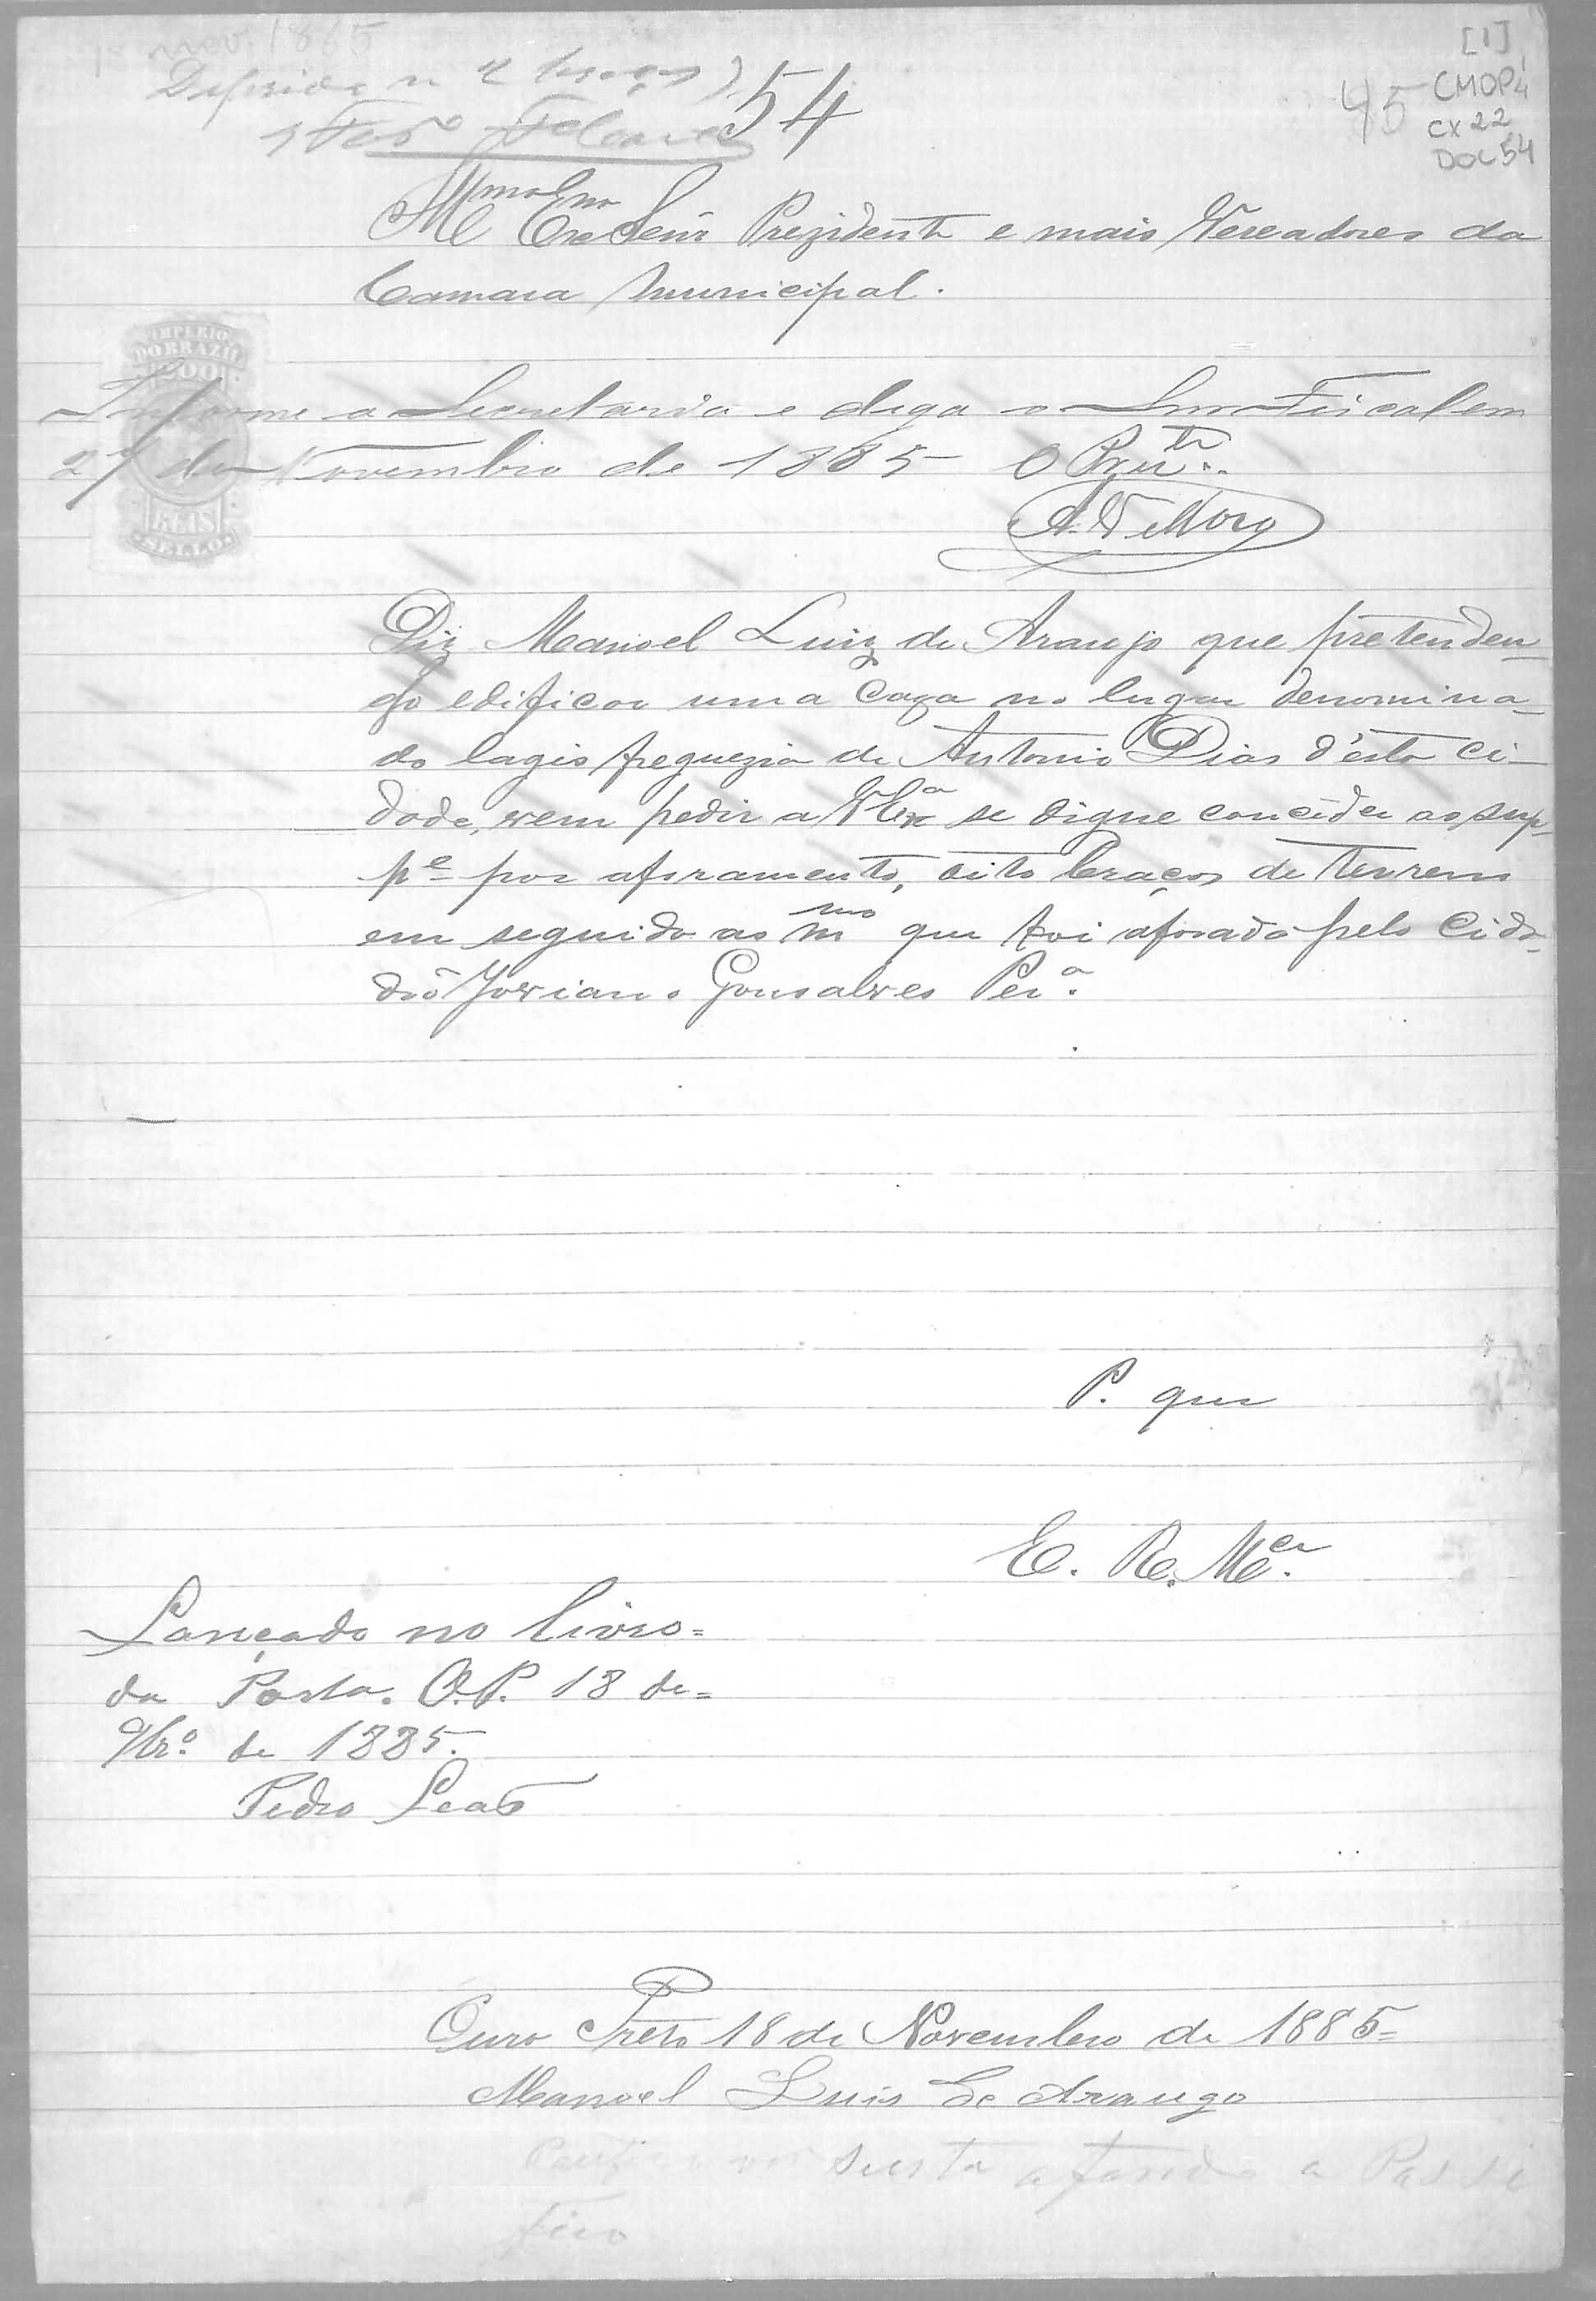 nov. 1885
Deferida
54
45
[1]
CMOP
CX 22
DOC 54
Illmo Exmo Senr Prezidente e mais Vereadores da
Camara Municipal.
IMPERIO
DO BRAZIL
200
REIS
SELLO
Informe a Secretaria e diga o Snr Fiscal em
27 de Novembro de 1885 O Prezte..
Diz Manoel Luiz de Araujo que pretenden-
do edificar uma caza no lugar denomina-
do lages freguezia de Antonio Dias d'esta ci-
dade, vem pedir a VExa se digne concêder ao sup-
pe por aforamento, oito braças de terreno
em seguida ao mmo que foi aforado pelo Cida-
dão Joviano Gonsalves Pera.
P. que
E. R. Mce.
Lançado no livro=
da Porta. O.P. 18 de=
9bro. de 1885.
Pedro Leaõ
Ouro Preto 18 de Novembro de 1885=
Manoel Luis de Araugo